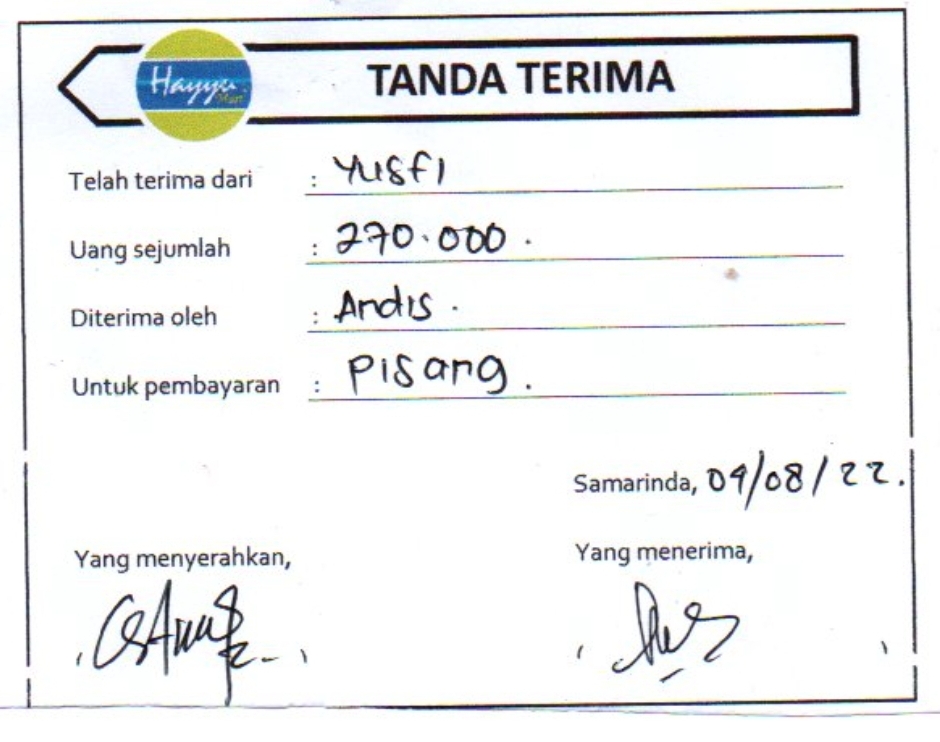 Hayyu Mart
TANDA TERIMA
Telah terima dari : Yusfi
Uang sejumlah : 270.000.
Diterima oleh : Andis.
Untuk pembayaran : Pisang.
Samarinda, 09/08/22.
Yang menyerahkan, Yang menerima,